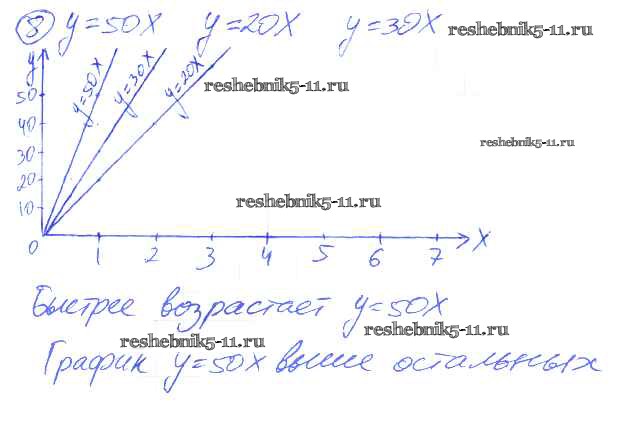 8 y=50x y=20x y=30x reshebnik5-11.ru
y
y=50x y=30x y=20x
reshebnik5-11.ru
50
40
reshebnik5-11.ru
30
20
reshebnik5-11.ru
10
0 1 2 3 4 5 6 7 x
Быстрее возрастает y=50x
reshebnik5-11.ru reshebnik5-11.ru
График y=50x выше остальных